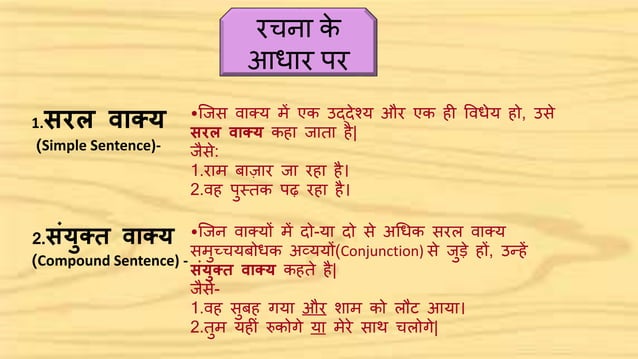 रचना के
आधार पर
1.सरल वाक्य
(Simple Sentence)-
•जिस वाक्य में एक उद्देश्य और एक ही विधेय हो, उसे
सरल वाक्य कहा जाता है|
जैसे:
1.राम बाज़ार जा रहा है।
2.वह पुस्तक पढ़ रहा है।
2.संयुक्त वाक्य
(Compound Sentence) -
•जिन वाक्यों में दो-या दो से अधिक सरल वाक्य
समुच्चयबोधक अव्ययों(Conjunction) से जुड़े हों, उन्हें
संयुक्त वाक्य कहते है|
जैसे-
1.वह सुबह गया और शाम को लौट आया।
2.तुम यहीं रुकोगे या मेरे साथ चलोगे|